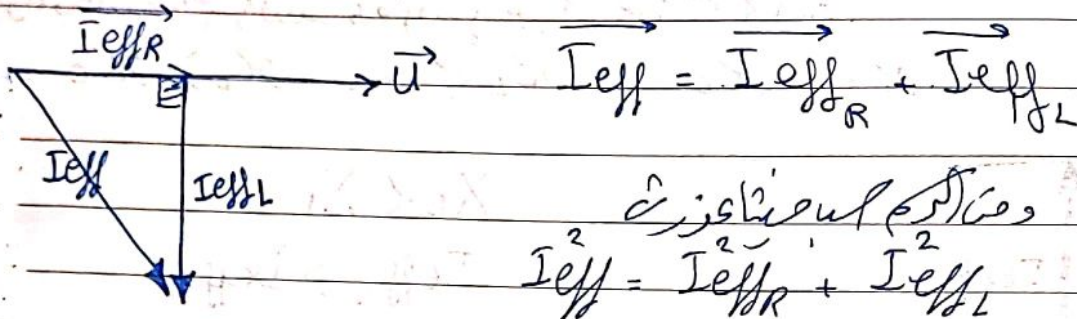 I⃗effR
U⃗
I⃗eff = I⃗effR + I⃗effL
Ieff
IeffL
ومن الرسم حسب فيثاغورث
I²eff = I²effR + I²effL